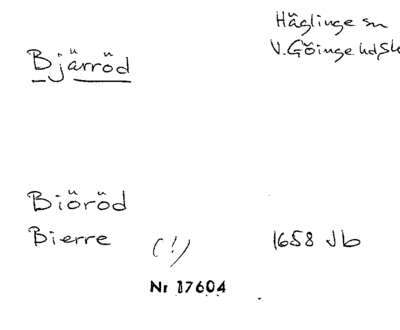 Häglinge sn
Bjärröd
V.Göinge hd Sk
Biöröd
Bierre (!) 1658 Jb
Nr 17604